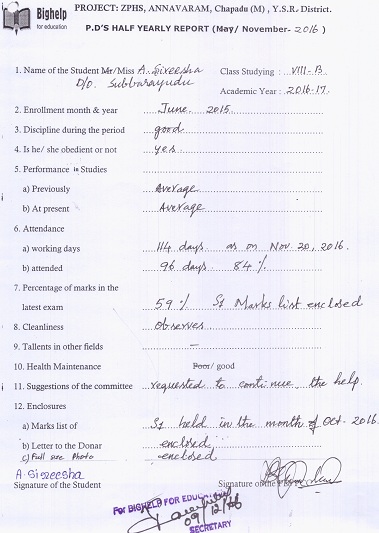 Bighelp
for education
PROJECT: ZPHS, ANNAVARAM, Chapadu (M), Y.S.R. District.
P.D'S HALF YEARLY REPORT (May/ November- 2016)
1. Name of the Student Mr/Miss A. Sireesha Class Studying : VIII-B
D/o. Subbarayudu Academic Year : 2016-17.
2. Enrollment month & year June. 2015.
3. Discipline during the period good
4. Is he/ she obedient or not yes.
5. Performance in Studies
a) Previously Average
b) At present Average
6. Attendance
a) working days 114 days as on Nov 20, 2016.
b) attended 96 days 84 %
7. Percentage of marks in the
latest exam 59 % S1 Marks list enclosed
8. Cleanliness Observes
9. Tallents in other fields —
10. Health Maintenance Poor/ good
11. Suggestions of the committee requested to continue the help.
12. Enclosures
a) Marks list of S1 held in the month of Oct- 2016
b) Letter to the Donar enclosed
c) Full size Photo enclosed
A. Sireesha
Signature of the Student Signature of the
For BIGHELP FOR EDUCATION
09/12/16
SECRETARY